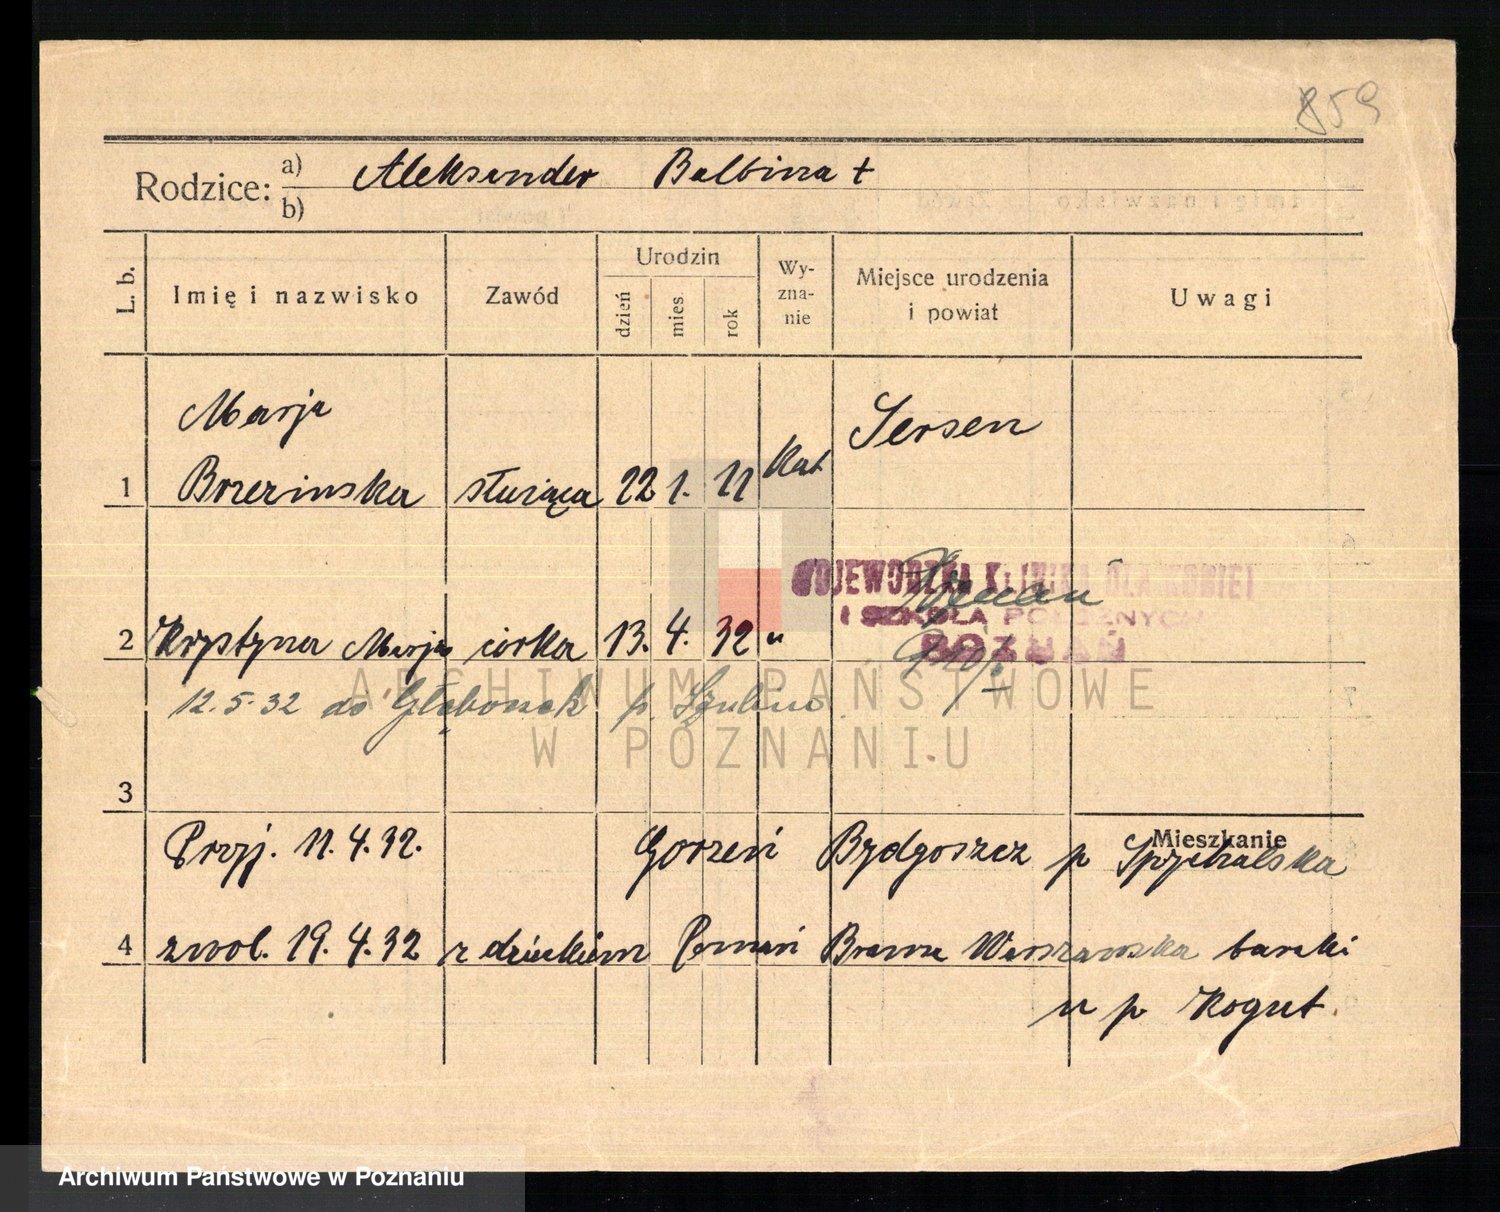 859
Rodzice: a) Aleksander Balbina +
b)
L. b.
Imię i nazwisko
Zawód
Urodzin
dzień
mies.
rok
Wy-
zna-
nie
Miejsce urodzenia
i powiat
Uwagi
Marja
1 Brzezinska służąca 22 1. 11 kat Jersen
WOJEWÓDZKA KLINIKA DLA KOBIET
I SZKOŁA POŁOŻNYCH
POZNAŃ
Poznań
2 Krystyna Marja córka 13. 4. 32 "
12.5.32 do Głęboczek p. Szubin
3
Mieszkanie
Przyj. 11.4.32. Gorzeń Bydgoszcz p Spychalska
4 zwol. 19.4.32 z dzieckiem Poznań Brama Warszawska baraki
u p Kogut.
ARCHIWUM PAŃSTWOWE
W POZNANIU
Archiwum Państwowe w Poznaniu